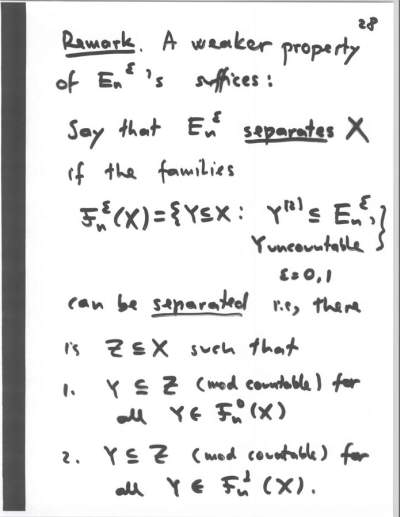 28
Remark. A weaker property
of Eₙ^ε's suffices:
Say that Eₙ^ε separates X
if the families
𝓕ₙ^ε(X) = {Y ⊆ X : Y^[2] ⊆ Eₙ^ε,
Y uncountable}
ε=0,1
can be separated i.e., there
is Z ⊆ X such that
1. Y ⊆ Z (mod countable) for
all Y ∈ 𝓕ₙ^0(X)
2. Y ⊆ Z (mod countable) for
all Y ∈ 𝓕ₙ^1(X).